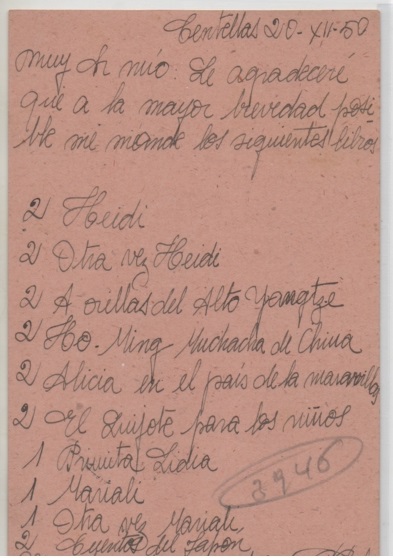 Centellas 20-XII-50
Muy Sr mío: Le agradeceré
que a la mayor brevedad posi-
ble me mande los siguientes libros
2 Heidi
2 Otra vez Heidi
2 A orillas del Alto Yangtze
2 Ho-Ming Muchacha de China
2 Alicia en el país de la maravillas
2 El Quijote para los niños
1 Lidia
1 Mariali
1 Otra vez Mariali
2 Cuentos del Japón
3946